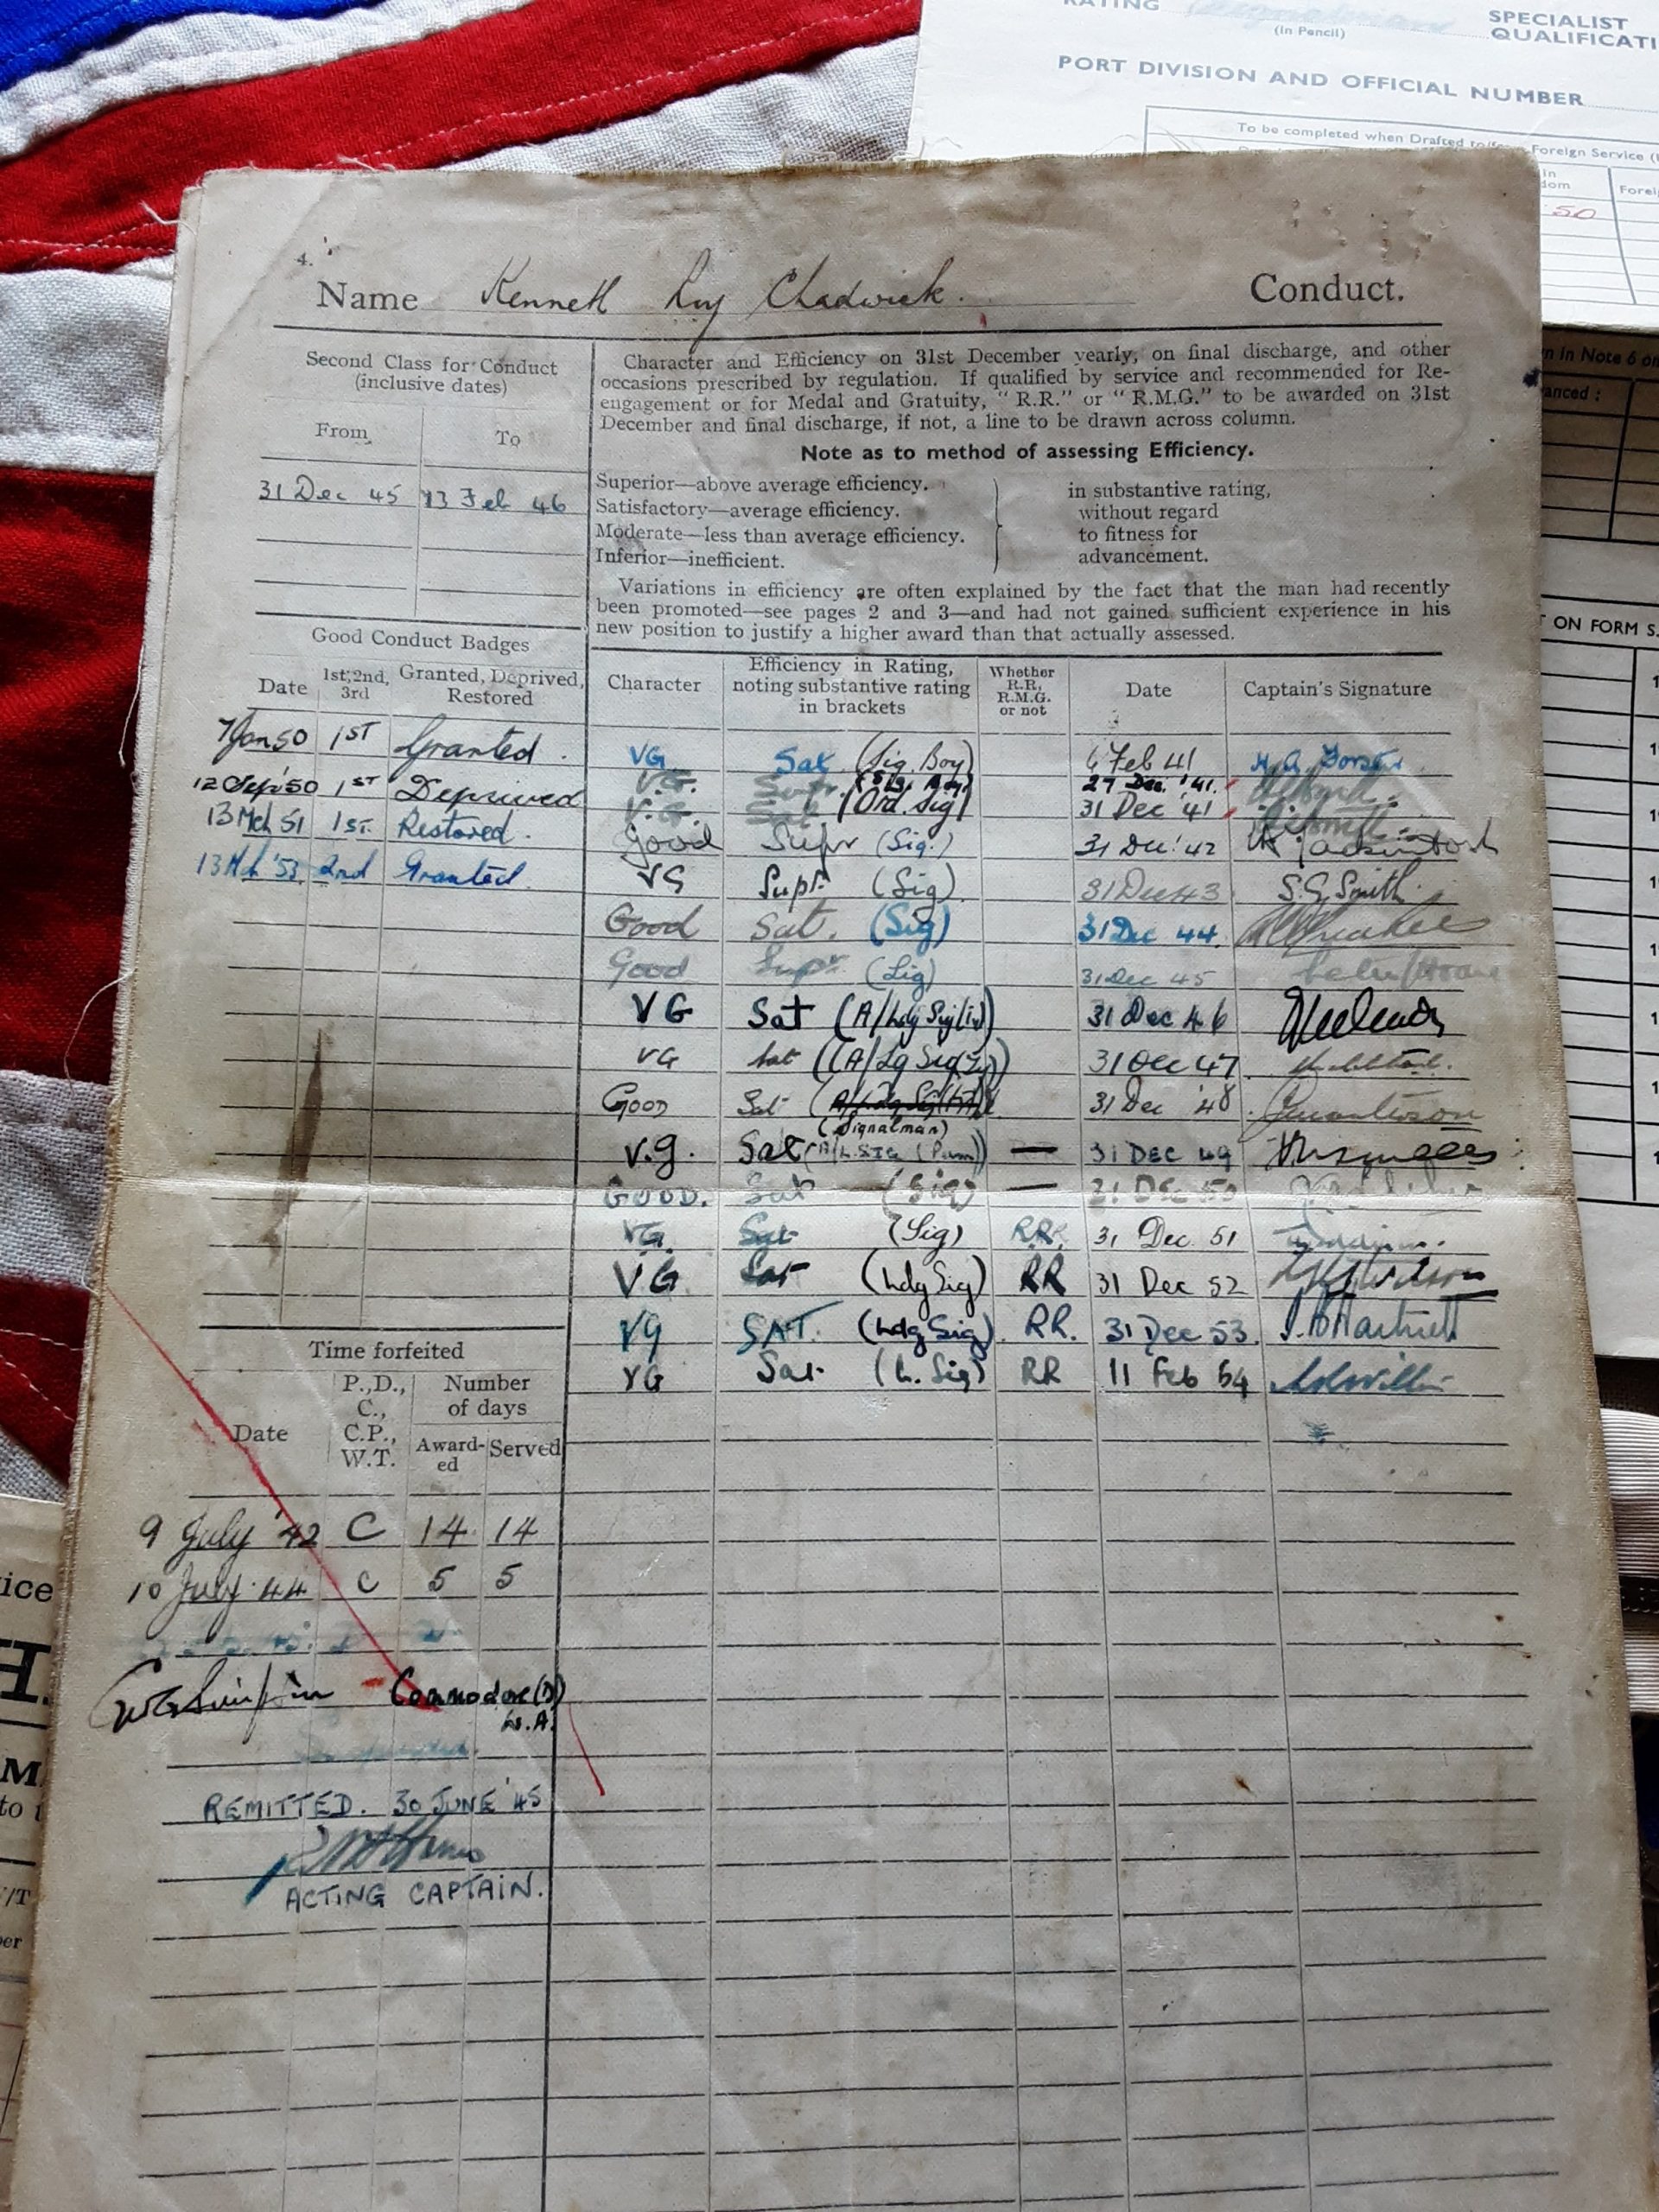 RATING
(In Pencil)
SPECIALIST
QUALIFICATI
PORT DIVISION AND OFFICIAL NUMBER
To be completed when Drafted to/from Foreign Service (
in
dom
Forei
50
4.
Name Kenneth Roy Chadwick. Conduct.
Second Class for Conduct
(inclusive dates)
From To
31 Dec 45 13 Feb 46
Character and Efficiency on 31st December yearly, on final discharge, and other
occasions prescribed by regulation. If qualified by service and recommended for Re-
engagement or for Medal and Gratuity, "R.R." or "R.M.G." to be awarded on 31st
December and final discharge, if not, a line to be drawn across column.
Note as to method of assessing Efficiency.
Superior—above average efficiency.
Satisfactory—average efficiency.
Moderate—less than average efficiency.
Inferior—inefficient.
in substantive rating,
without regard
to fitness for
advancement.
Variations in efficiency are often explained by the fact that the man had recently
been promoted—see pages 2 and 3—and had not gained sufficient experience in his
new position to justify a higher award than that actually assessed.
Good Conduct Badges
Date 1st, 2nd, 3rd Granted, Deprived, Restored
7 Jan 50 1ST Granted.
12 Sep '50 1ST Deprived
13 Mch 51 1st. Restored.
13 Mch '53 2nd Granted.
Character
Efficiency in Rating,
noting substantive rating
in brackets
Whether
R.R,
R.M.G.
or not
Date
Captain's Signature
VG Sat (Sig. Boy) 6 Feb 41
V.G. Supr. 27 Dec. '41.
V.G. Sat (Ord. Sig) 31 Dec '41
Good Supr (Sig.) 31 Dec. '42
VG Supr. (Sig) 31 Dec 43 S.G. Smith.
Good Sat. (Sig) 31 Dec 44.
Good Supr. (Sig) 31 Dec 45
VG Sat (A/Ldg Sig 31 Dec 46
VG Sat (A/Lg Sig 31 Dec 47
Good Sat 31 Dec '48
(Signalman)
V.G. Sat (A/L.SIG — 31 DEC 49
GOOD. Sat (Sig) — 31 Dec 50
VG. Sat (Sig) RR. 31 Dec. 51
VG Sat (Ldg Sig) RR 31 Dec 52
VG SAT. (Ldg Sig) RR. 31 Dec 53.
VG Sat (L. Sig) RR 11 Feb 54
Time forfeited
Date
P.,D.,
C.,
C.P.,
W.T.
Number
of days
Award-
ed
Served
9 July '42 C 14 14
10 July 44 C 5 5
Commodore (D)
W.A.
REMITTED. 30 JUNE '45
ACTING CAPTAIN.
n in Note 6 on
anced :
ON FORM S.
ice
H.
M
to t
/T
per